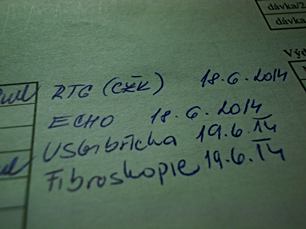 dávka/2
dávka/
RTG (CŽK) 18.6.2014
ECHO 18.6.2014
USG břicha 19.6.14
Fibroskopie 19.6.14